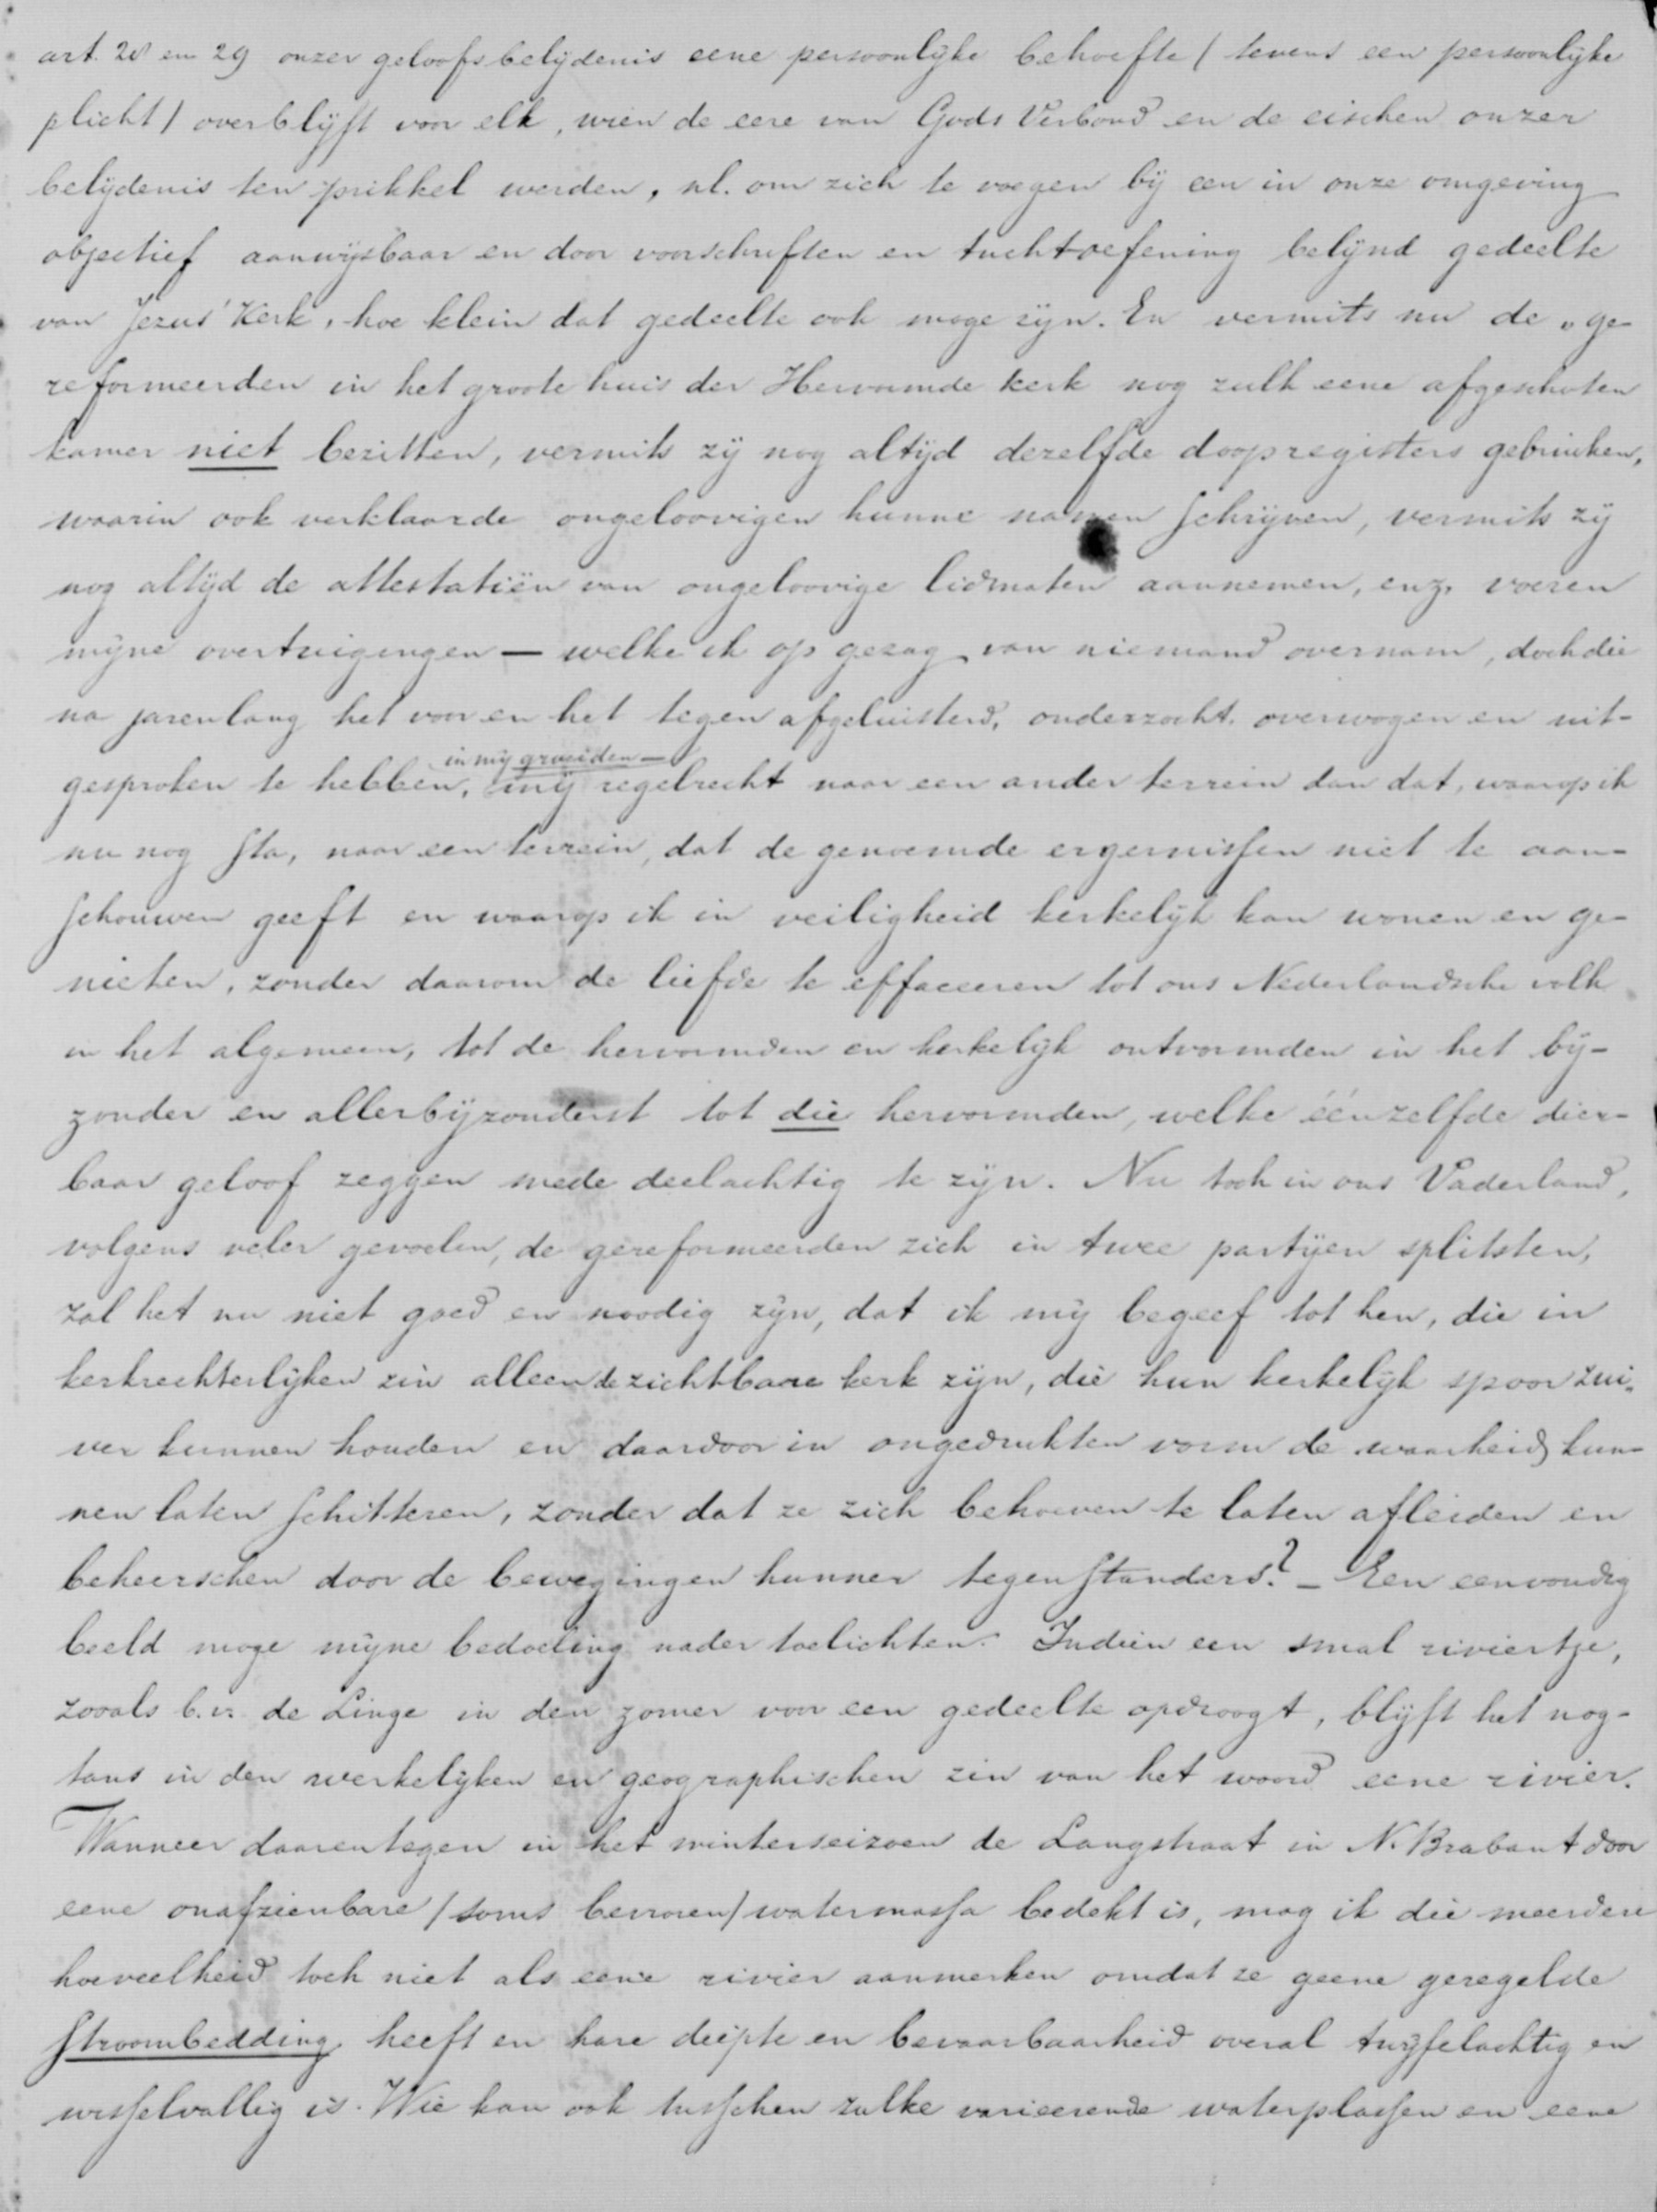 art. 28 en 29 onzer geloofsbelijdenis eene persoonlijke behoefte (tevens een persoonlijke
plicht) overblijft voor elk, wien de eere van Gods Verbond en de eischen onzer
belijdenis ten prikkel werden, nl. om zich te voegen bij een in onze omgeving
objectief aanwijsbaar en door voorschriften en tuchtoefening belijnd gedeelte
van Jezus' Kerk, hoe klein dat gedeelte ook moge zijn. En vermits nu de „ge-
reformeerden in het groote huis der Hervormde kerk nog zulk eene afgeschoten
kamer niet bezitten, vermits zij nog altijd dezelfde doopregisters gebruiken,
waarin ook verklaarde ongeloovigen hunne namen schrijven, vermits zij
nog altijd de attestatiën van ongeloovige lidmaten aannemen, enz. voeren
mijne overtuigingen — welke ik op gezag van niemand overnam, doch die
na jarenlang het voor en het tegen afgeluisterd, onderzocht, overwogen en uit-
in mij groeiden —
gesproken te hebben, mij regelrecht naar een ander terrein dan dat, waarop ik
nu nog sta, naar een terrein, dat de genoemde ergernissen niet te aan-
schouwen geeft en waarop ik in veiligheid kerkelijk kan wonen en ge-
nieten, zonder daarom de liefde te effaceeren tot ons Nederlandsche volk
in het algemeen, tot de hervormden en kerkelijk ontvormden in het bij-
zonder en allerbijzonderst tot die hervormden, welke éénzelfde dier-
baar geloof zeggen mede deelachtig te zijn. Nu toch in ons Vaderland,
volgens veler gevoelen, de gereformeerden zich in twee partijen splitsten,
zal het nu niet goed en noodig zijn, dat ik mij begeef tot hen, die in
kerkrechterlijken zin alleen de zichtbare kerk zijn, die hun kerkelijk spoor zui-
ver kunnen houden en daardoor in ongedrukten vorm de waarheid kun-
nen laten schitteren, zonder dat ze zich behoeven te laten afleiden en
beheerschen door de bewegingen hunner tegenstanders? — Een eenvoudig
beeld moge mijne bedoeling nader toelichten. Indien een smal riviertje,
zooals b.v. de Linge in den zomer voor een gedeelte opdroogt, blijft het nog-
tans in den werkelijken en geographischen zin van het woord eene rivier.
Wanneer daarentegen in het winterseizoen de Langstraat in N. Brabant door
eene onafzienbare (soms bevroren) watermassa bedekt is, mag ik die meerdere
hoeveelheid toch niet als eene rivier aanmerken omdat ze geene geregelde
stroombedding heeft en hare diepte en bevaarbaarheid overal twijfelachtig en
wisselvallig is. Wie kan ook tusschen zulke varieerende waterplassen en eene